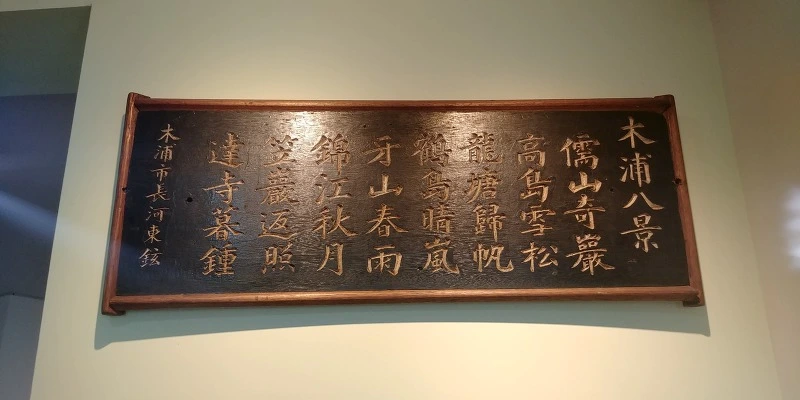 木浦八景
儒山奇巖
高島雪松
龍塘歸帆
鶴島晴嵐
牙山春雨
錦江秋月
笠巖返照
達寺暮鍾
木浦市長河東鉉